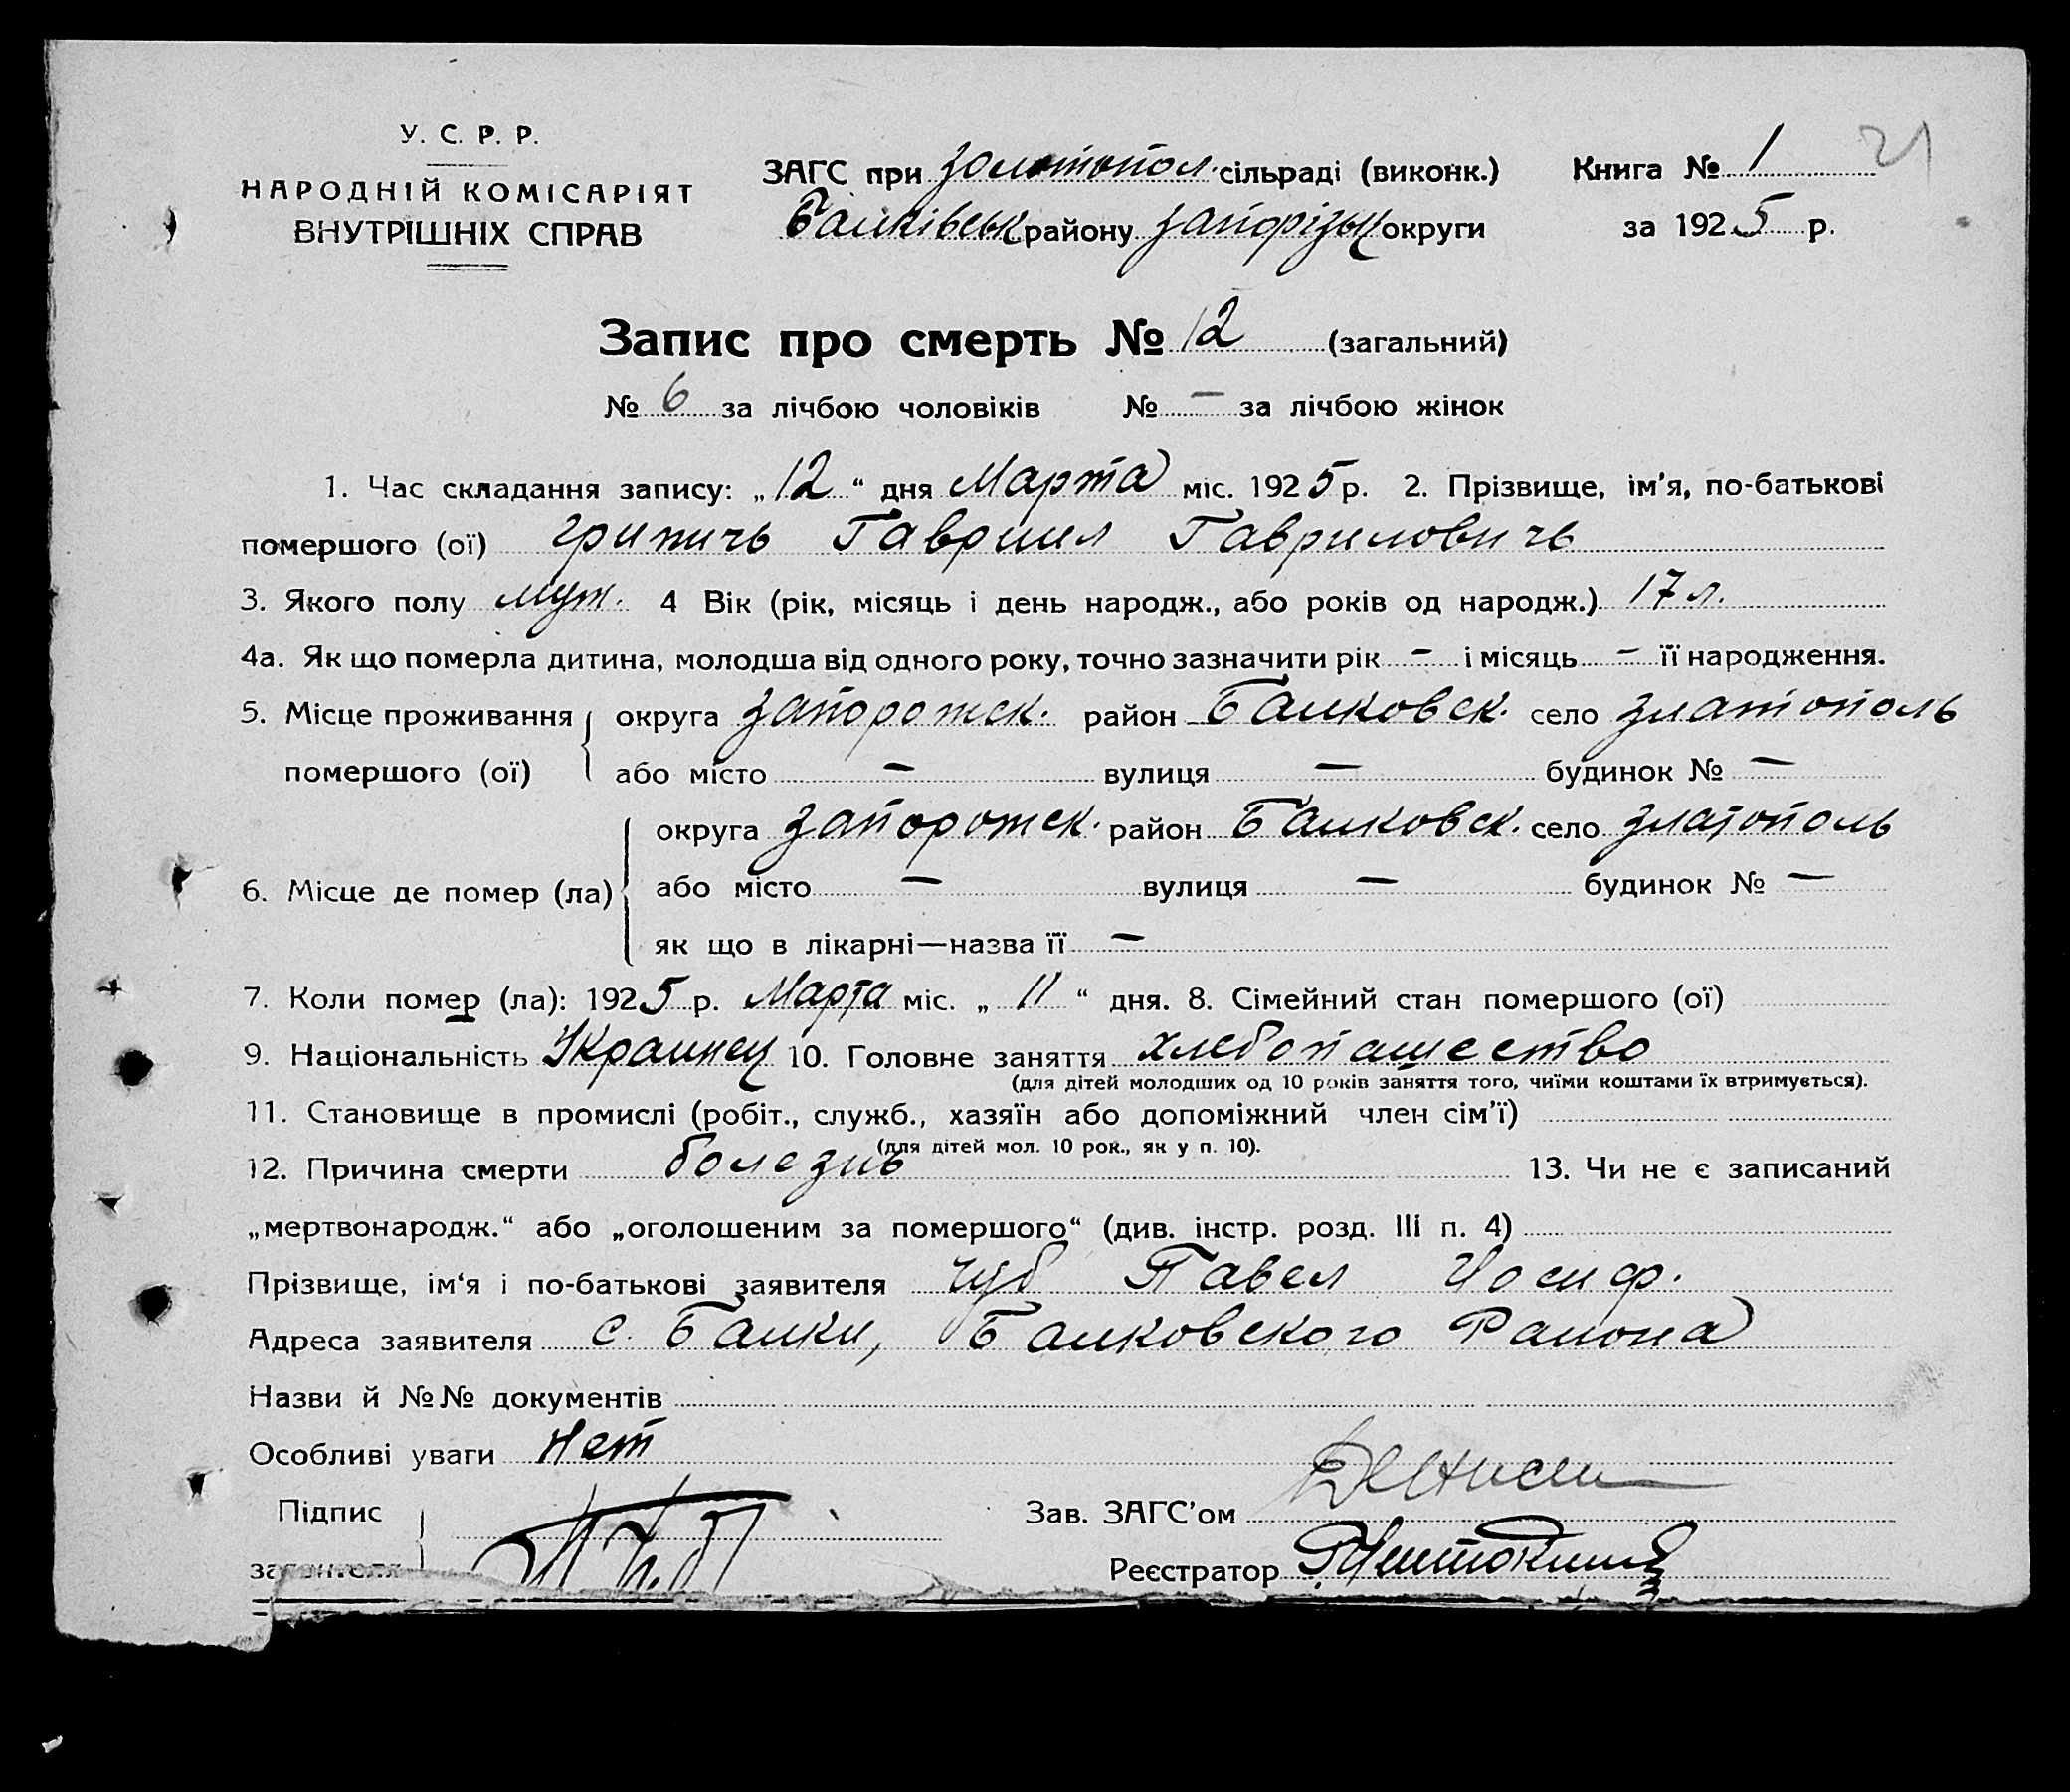 У. С. Р. Р.
НАРОДНІЙ КОМІСАРІЯТ
ВНУТРІШНІХ СПРАВ
ЗАГС при золотопол. сільраді (виконк.)
Балківськ району запорізьк округи
Книга № 1
21
за 1925 р.
Запис про смерть № 12 (загальний)
№ 6 за лічбою чоловіків № — за лічбою жінок
1. Час складання запису: „12“ дня Марта міс. 1925 р. 2. Прізвище, ім'я, по-батькові
помершого (ої) Грижичь Гавриил Гавриловичь
3. Якого полу муж. 4 Вік (рік, місяць і день народж., або років од народж.) 17 л.
4а. Як що померла дитина, молодша від одного року, точно зазначити рік - і місяць - її народження.
5. Місце проживання помершого (ої) округа запорожск. район Балковск. село златополь
або місто — вулиця — будинок № —
6. Місце де помер (ла) округа запорожск. район Балковск. село златополь
або місто — вулиця — будинок № —
як що в лікарні—назва її —
7. Коли помер (ла): 1925 р. Марта міс. „11“ дня. 8. Сімейний стан помершого (ої)
9. Національність Украинец 10. Головне заняття хлебопашество
(для дітей молодших од 10 років заняття того, чиїми коштами їх втримується).
11. Становище в промислі (робіт., служб., хазяїн або допоміжний член сім'ї)
(для дітей мол. 10 рок., як у п. 10).
12. Причина смерти болезнь 13. Чи не є записаний
„мертвонародж.“ або „оголошеним за помершого“ (див. інстр. розд. III п. 4)
Прізвище, ім'я і по-батькові заявителя Чуб Павел Иосиф.
Адреса заявителя с. Балки, Балковского Района
Назви й №№ документів
Особливі уваги Нет
Підпис заявителя
Зав. ЗАГС'ом
Реєстратор